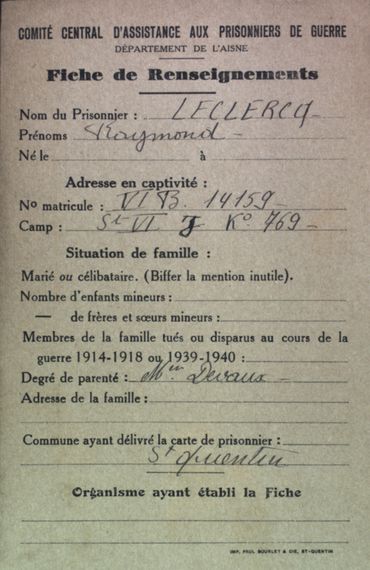 COMITÉ CENTRAL D'ASSISTANCE AUX PRISONNIERS DE GUERRE
DÉPARTEMENT DE L'AISNE
Fiche de Renseignements
Nom du Prisonnier : LECLERCQ
Prénoms Raymond
Né le à
Adresse en captivité :
No matricule : VI B. 14159
Camp : St VI J Ko 769
Situation de famille :
Marié ou célibataire. (Biffer la mention inutile).
Nombre d'enfants mineurs :
— de frères et sœurs mineurs :
Membres de la famille tués ou disparus au cours de la
guerre 1914-1918 ou 1939-1940 :
Degré de parenté : Devaux
Adresse de la famille :
Commune ayant délivré la carte de prisonnier :
St Quentin
Organisme ayant établi la Fiche
IMP. PAUL BOURLET & CIE, ST-QUENTIN